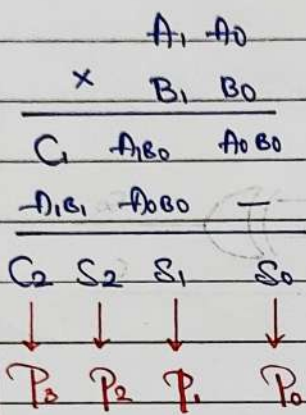 A₁ A₀
× B₁ B₀
C₁ A₁B₀ A₀B₀
A₁B₁ A₀B₀ —
C₂ S₂ S₁ S₀
P₃ P₂ P₁ P₀